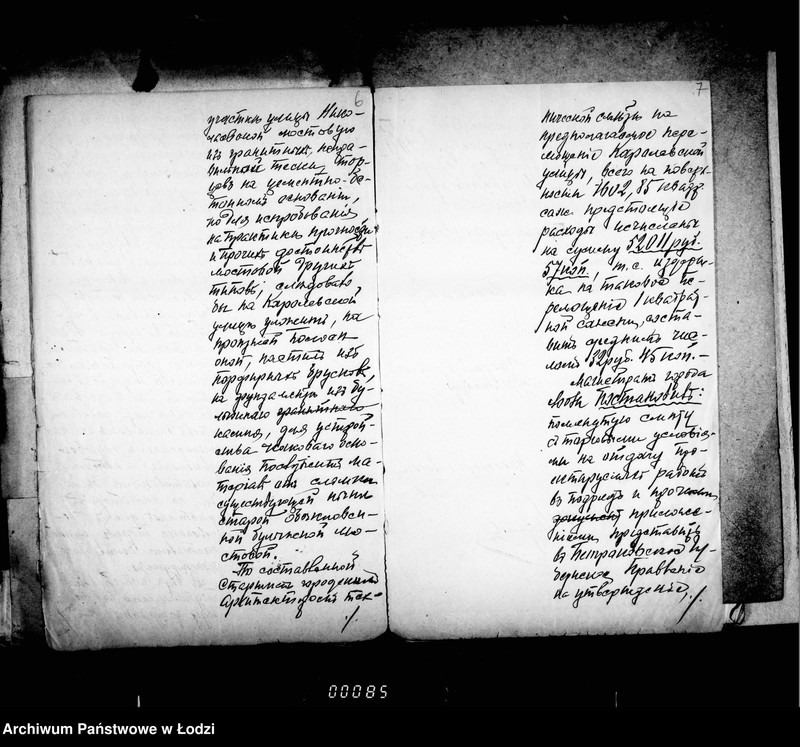 6
участкѣ улицы Нико-
лаевской мостовую
изъ гранитныхъ, непра-
вильной тески, тор-
цовъ на цементно-бе-
тонномъ основаніи,
но для испробованія
на практикѣ прочности
и прочихъ достоинствъ
мостовой другихъ
типовъ, слѣдовало
бы на Каролевской
улицѣ уложить, на
проѣзжей полосѣ
оной, настилъ изъ
порфирныхъ брусковъ,
на фундаментѣ изъ бу-
лыжнаго гранитнаго
камня, для устрой-
ства какового осно-
ванія послужитъ ма-
теріалъ отъ сломки
существующей нынѣ
старой обыкновен-
ной булыжной мо-
стовой.
По составленной
старшимъ городскимъ
архитекторомъ тех-
./.
7
нической смѣтѣ на
предполагаемое пере-
мощеніе Каролевской
улицы, всего на поверх-
ности 1602,85 квадр.
саж. предстоящіе
расходы исчислены
на сумму 52011 руб.
57 коп., т.е. издерж-
ка на таковое пе-
ремощеніе 1 квадрат-
ной сажени, соста-
витъ среднимъ чис-
ломъ 32 руб. 45 коп.-
Магистратъ города
Лодзи Постановилъ:
помянутую смѣту
съ торговыми условія-
ми на отдачу про-
ектируемыхъ работъ
въ подрядъ и прочими
приложе-
ніями представить
въ Петроковское Гу-
бернское Правленіе
на утвержденіе,
./.
00085
Archiwum Państwowe w Łodzi